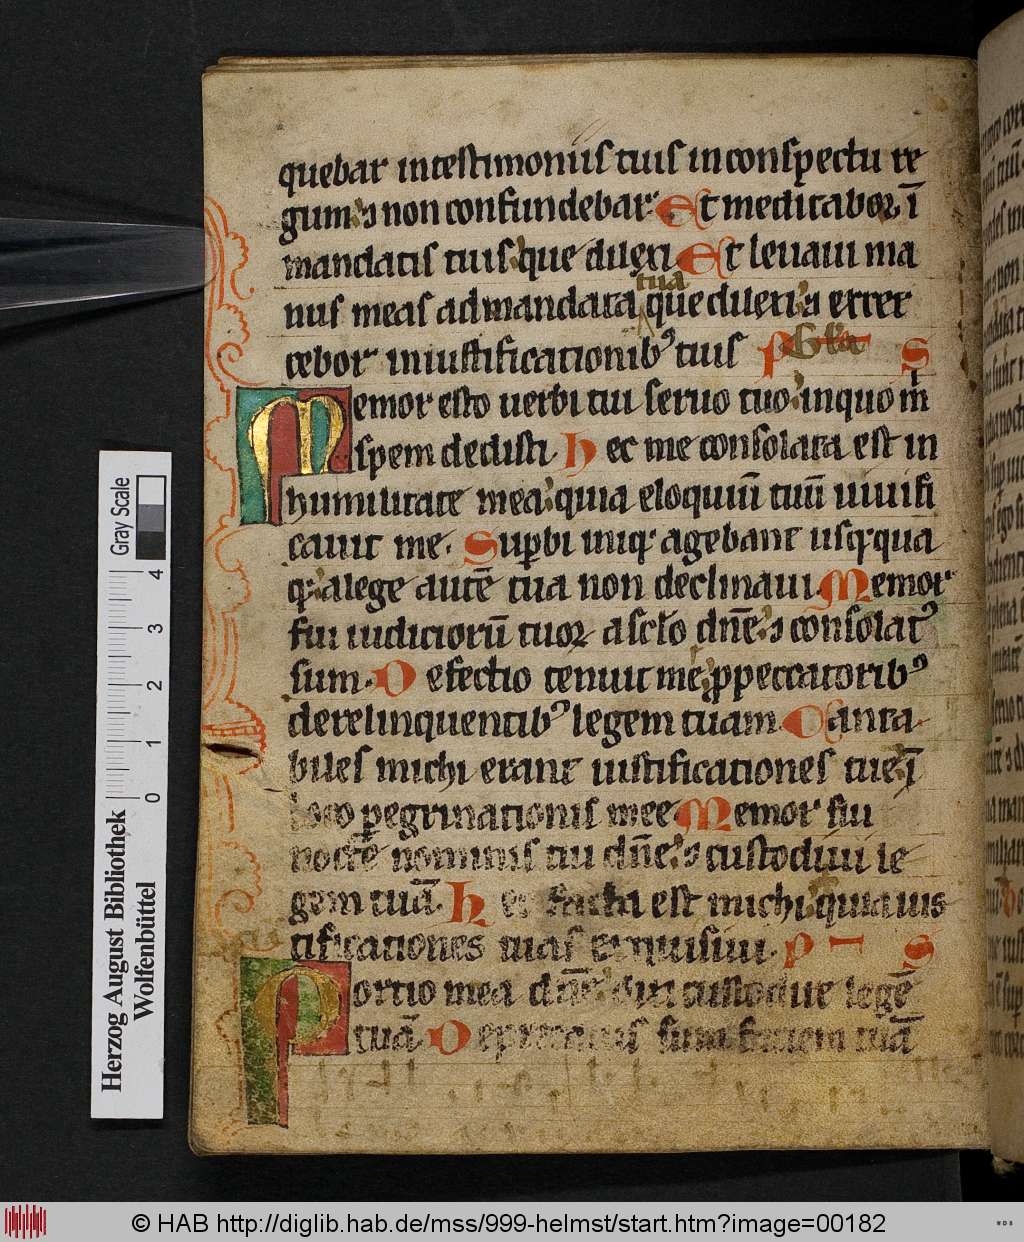 quebar in testimoniis tuis in conspectu re
gum ⁊ non confundebar Et meditabor ī
mandatis tuis que dilexi Et levavi ma
tua
nus meas ad mandata que dilexi ⁊ exer
cebor in iustificationibꝰ tuis P Gła S
Memor esto verbi tui servo tuo in quo m̄
spem dedisti. Hec me consolata est in
humilitate mea quia eloquiū tuū vivifi
cavit me. Supꝑbi iniq agebant usq qua
q alege autē tua non declinavi Memor
fui iudiciorū tuoꝝ a sclo dn̄e ⁊ consolatꝰ
sum. Defectio tenuit me ꝓ peccatoribꝰ
derelinquentibꝰ legem tuam. Canta
biles michi erant iustificationes tue ī
loco ꝑegrinationis mee Memor fui
nocte nominis tui dn̄e ⁊ custodivi le
gem tuā. Hec facta est michi quia ius
tificationes tuas exquisivi. P S
Portio mea dn̄e dixi custodire legē
tuā Deprecatus sum faciem tuā
Gray Scale
4
3
2
1
0
Herzog August Bibliothek
Wolfenbüttel
© HAB http://diglib.hab.de/mss/999-helmst/start.htm?image=00182